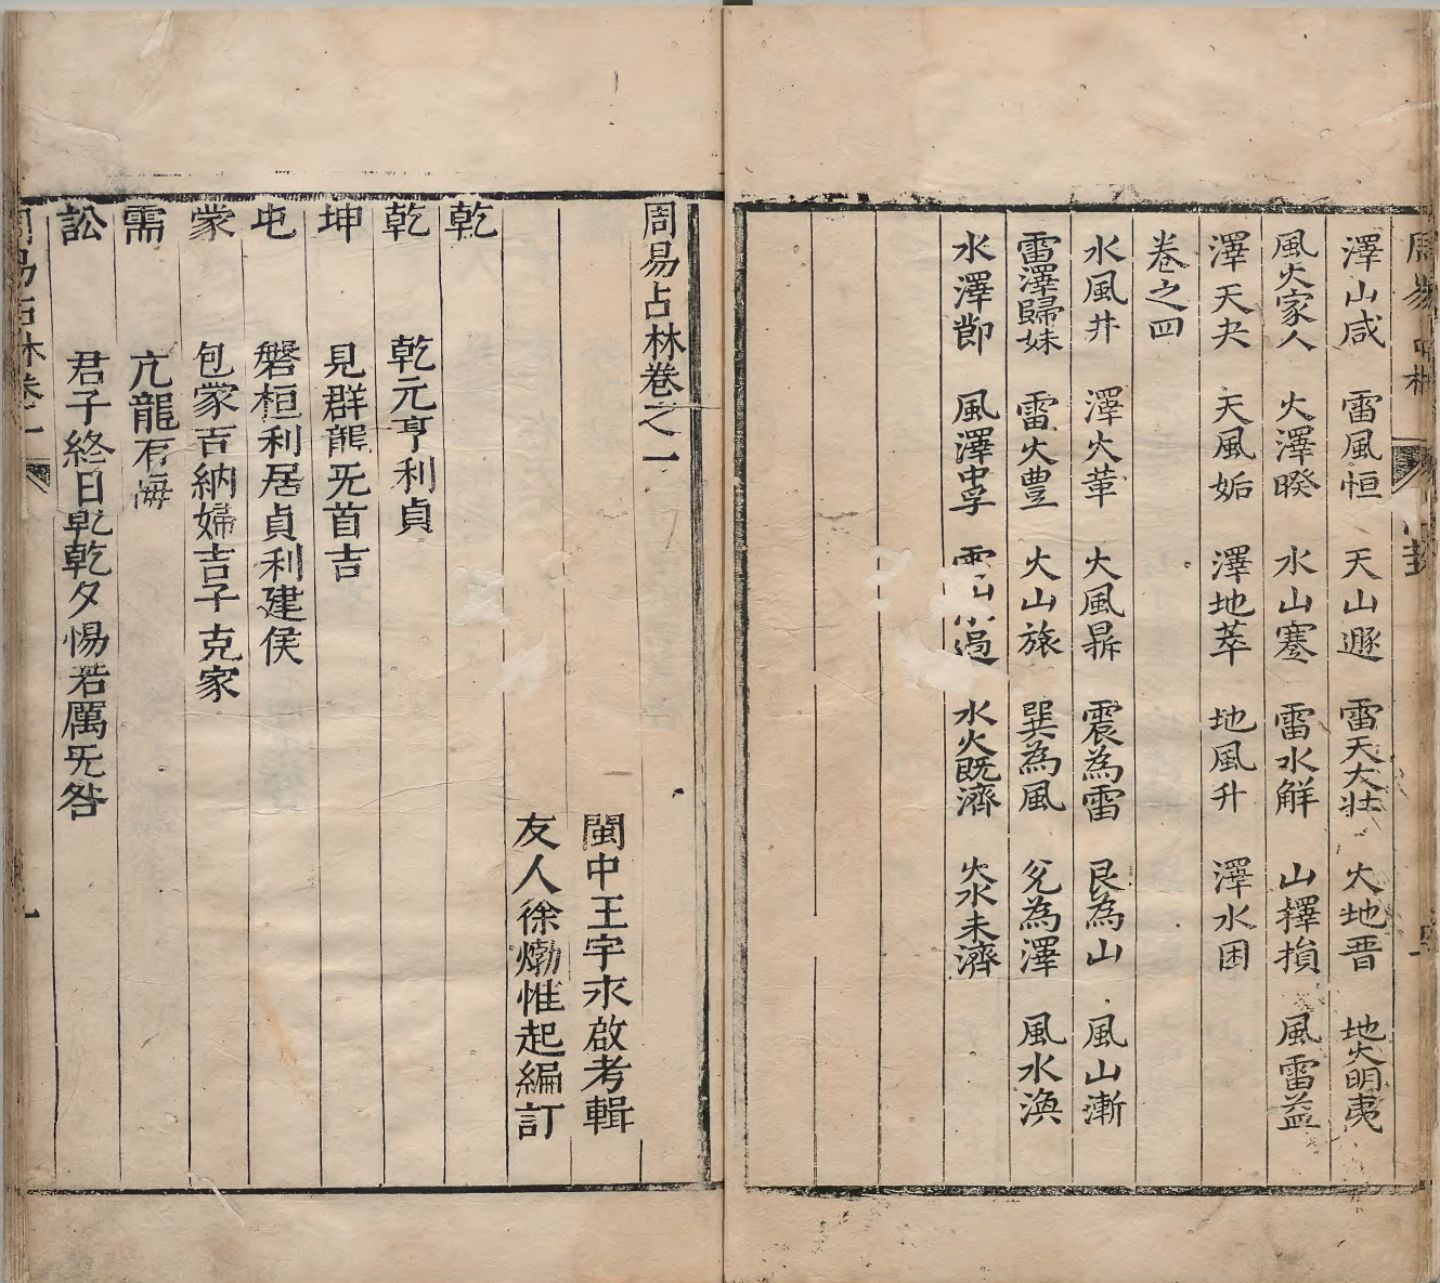 澤山咸　雷風恒　天山遯　雷天大壯　火地晋　地火明夷
風火家人　火澤暌　水山蹇　雷水解　山擇損　風雷益
澤天夬　天風姤　澤地萃　地風升　澤水困
卷之四
水風井　澤火革　火風鼎　震為雷　艮為山　風山漸
雷澤歸妹　雷火豊　火山旅　巽為風　兌為澤　風水渙
水澤節　風澤中孚　過　水火既濟　火水未濟
周易占林卷之一
閩中王宇永啟考輯
友人徐𤊹惟起編訂
乾
乾　乾元亨利貞
坤　見群龍旡首吉
屯　磐桓利居貞利建侯
蒙　包蒙吉納婦吉子克家
需　亢龍有悔
訟　君子終日乾乾夕惕若厲旡咎
周易占林卷一